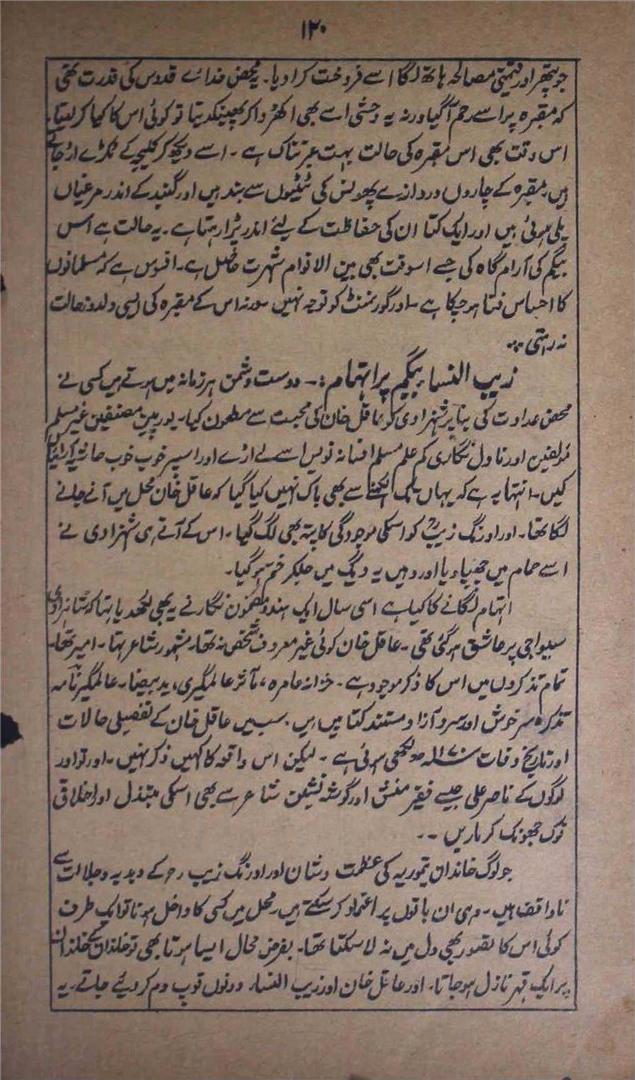 ۱۲۰
جو پتھر اور قیمتی مصالحہ ہاتھ لگا اسے فروخت کرا دیا۔ یہ محض خدائے قدوس کی قدرت تھی
کہ مقبرہ پر اسے رحم آگیا ورنہ یہ وحشی اسے بھی اکھڑوا کر پھینکدیتا تو کوئی اس کا کیا کر لیتا۔
اس وقت بھی اس مقبرہ کی حالت بہت عبرتناک ہے۔ اسے دیکھ کر کلیجے کے ٹکڑے اڑ جاتے
ہیں مقبرہ کے چاروں دروازے پھونس کی ٹٹیوں سے بند ہیں اور گنبد کے اندر مرغیاں
پلی ہوئی ہیں اور ایک کتا ان کی حفاظت کے لئے اندر پڑا رہتا ہے۔ یہ حالت ہے اس
بیگم کی آرام گاہ کی جسے اسوقت بھی بین الاقوام شہرت حاصل ہے۔ افسوس ہے کہ مسلمانوں
کا احساس فنا ہو چکا ہے۔ اور گورنمنٹ کو توجہ نہیں ورنہ اس کے مقبرہ کی ایسی حالت
نہ رہتی۔۔
زیب النسا بیگم پر اتہام :۔ دوست و دشمن ہر زمانہ میں ہوتے ہیں کسی نے
محض عداوت کی بنا پر شہزادی کو عاقل خان کی محبت سے مطعون کیا۔ یورپین مصنفین غیر مسلم
مؤلفین اور ناول نگاری کم علم مسلم افسانہ نویس اسے لے اڑے اور اسپر خوب خوب حاشیہ آرائیاں
کیں۔ انتہا یہ ہے کہ یہاں تک لکھنے سے بھی باک نہیں کیا گیا کہ عاقل خان محل میں آنے جانے
لگا تھا۔ اور اورنگ زیبؒ کو اسکی موجودگی کا پتہ بھی لگ گیا۔ اس کے آتے ہی شہزادی نے
اسے حمام میں چھپا دیا اور وہیں یہ دیگ میں جلکر ختم ہو گیا۔
اتہام لگانے کا کیا ہے اسی سال ایک ہندو مضمون نگار نے یہ بھی لکھدیا تھا کہ شاہزادی
سیواجی پر عاشق ہو گئی تھی۔ عاقل خان کوئی غیر معروف شخص نہ تھا۔ مشہور شاعر تھا۔ امیر تھا۔
تمام تذکروں میں اس کا ذکر موجود ہے۔ خزانہ عامرہ، مآثر عالمگیری، ید بیضا۔ عالمگیر نامہ
تذکرہ سرخوش اور سرو آزاد مستند کتابیں ہیں۔ سب میں عاقل خان کے تفصیلی حالات
اور تاریخ وفات لکھی ہوئی ہے۔ لیکن اس واقعہ کا کہیں ذکر نہیں۔ اور تو اور
لوگوں کے ناصر علی جیسے فقیر منش اور گوشہ نشین شاعر سے بھی اسکی مبتذل اور اخلاقی
نوک جھونک کرماریں۔۔
جو لوگ خاندان تیموریہ کی عظمت و شان اور اورنگ زیب رح کے دبدبہ و جلالت سے
ناواقف ہیں۔ وہی ان باتوں پر اعتماد کر سکتے ہیں۔ محل میں کسی کا داخل ہونا تو ایک طرف
کوئی اس کا تصور بھی دل میں نہ لا سکتا تھا۔ بفرض محال ایسا ہوتا بھی تو خاندان کے خاندان
پر ایک قہر نازل ہو جاتا۔ اور عاقل خان اور زیب النساء دونوں توپ دم کر دیئے جاتے۔ یہ